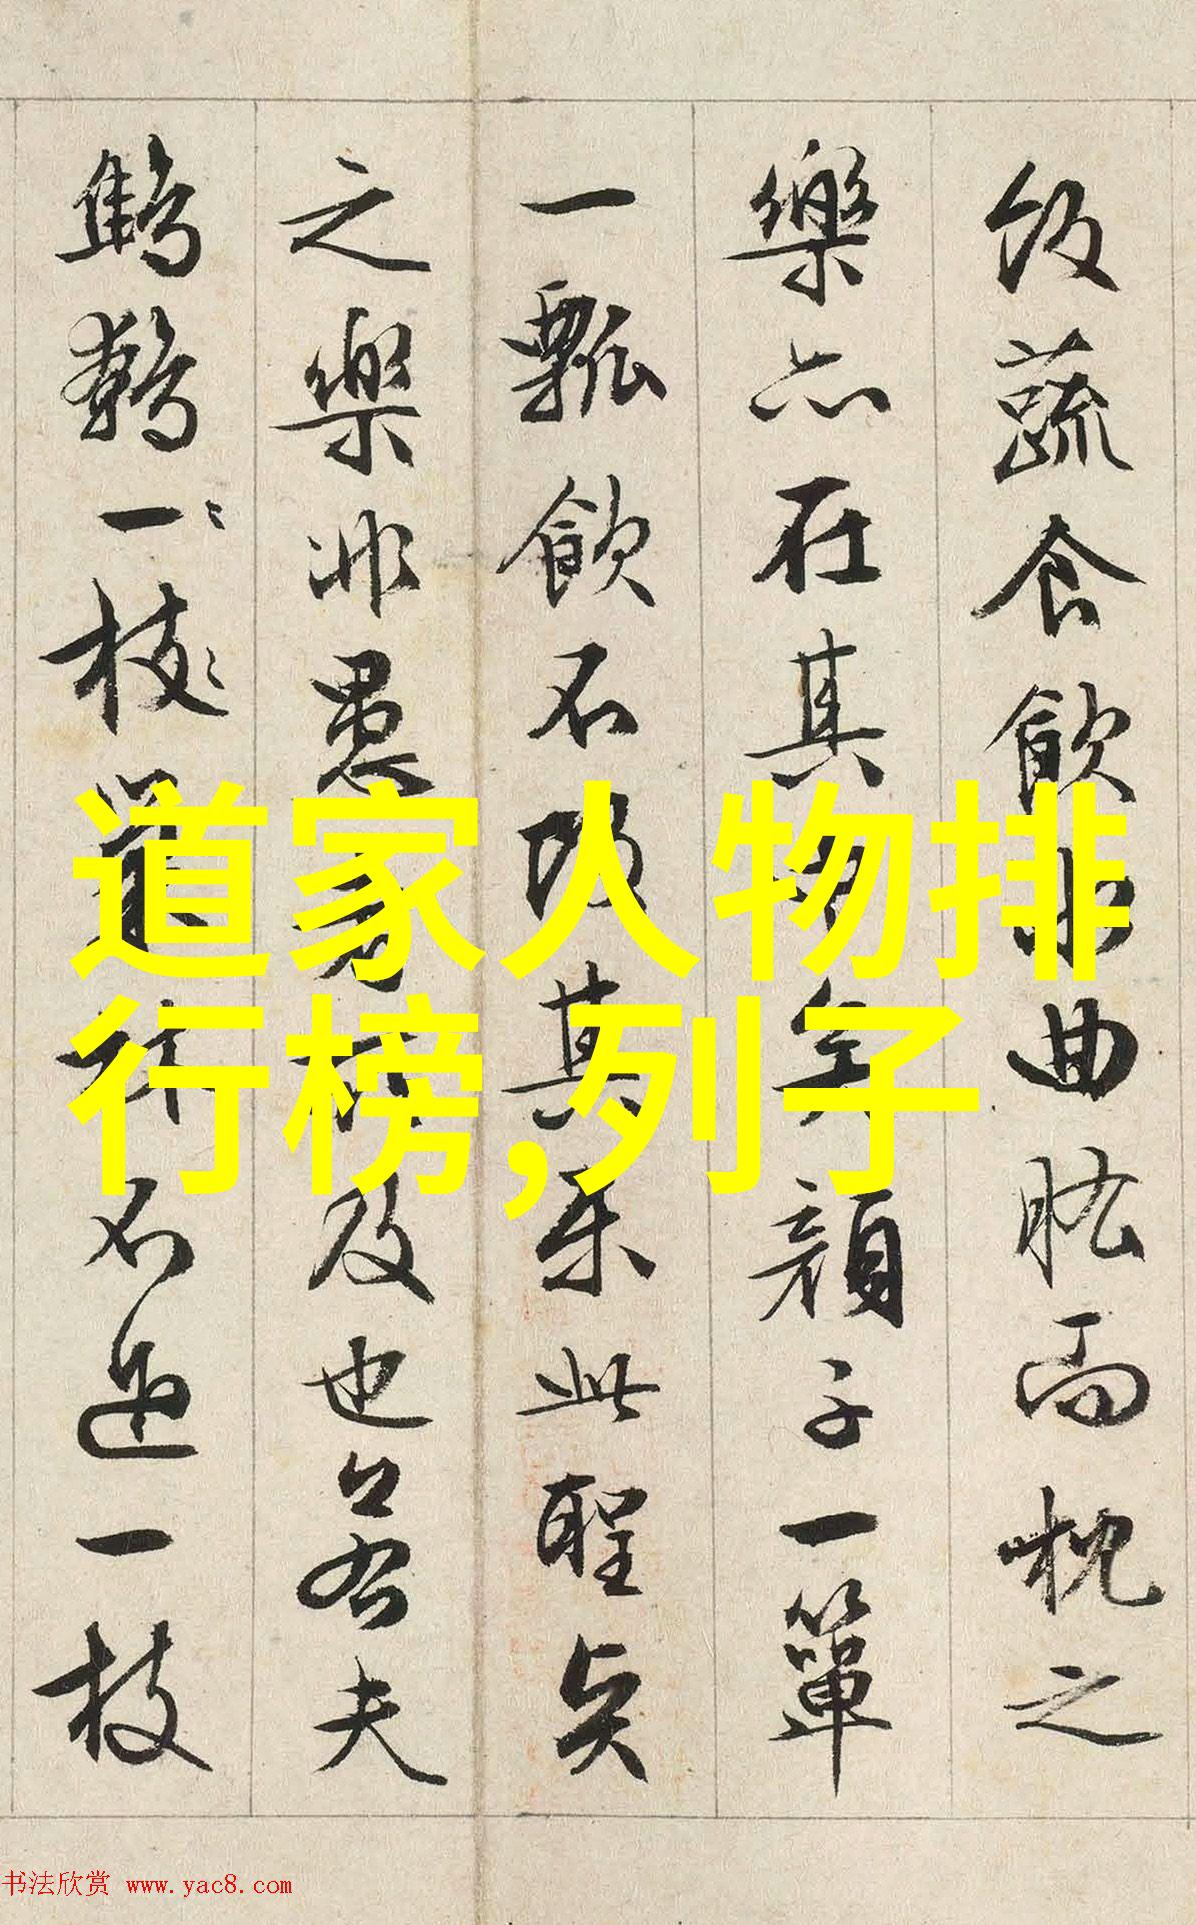 飯蔬食飲水曲肱而枕之
樂亦在其中矣顏子一簞
一瓢飲不改其樂此聖賢
之樂非愚者所及也若夫
鷦鷯一枝巢林不過一枝
道家人物排
行榜,列子
书法欣赏 www.yac8.com